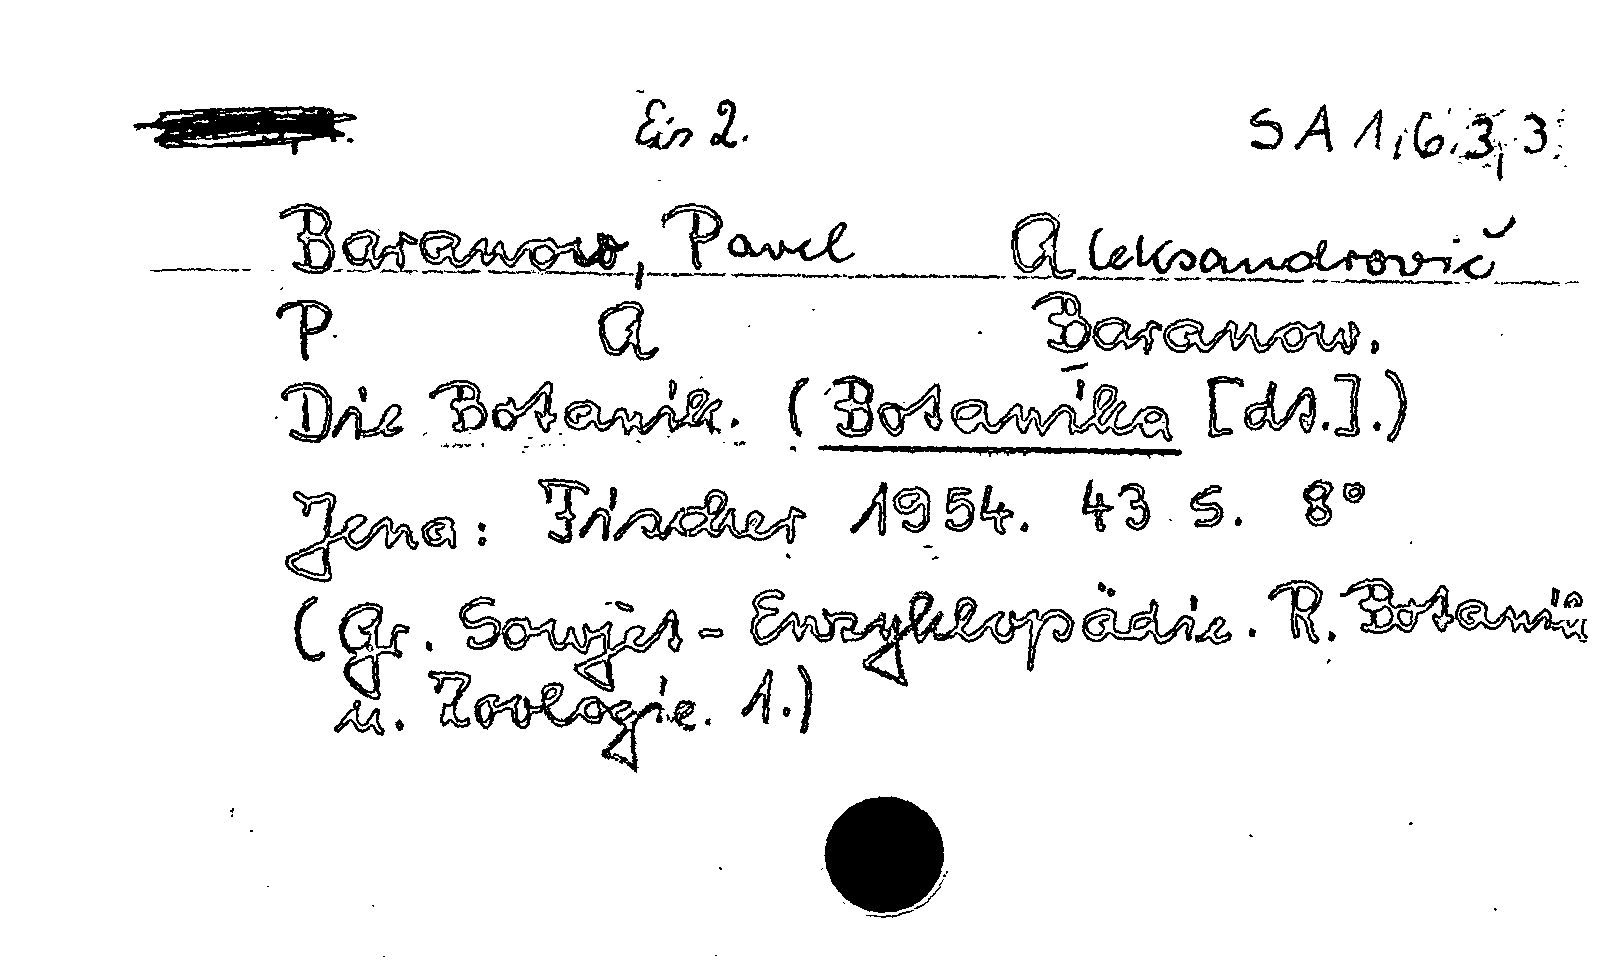 Eis 2. SA 1,6.3,3
Baranow, Pavel Aleksandrovič
P. A Baranow.
Die Botanik. (Botanika [dt.].)
Jena: Fischer 1954. 43 S. 8°
(Gr. Sowjet-Enzyklopädie. R. Botanik
u. Zoologie. 1.)